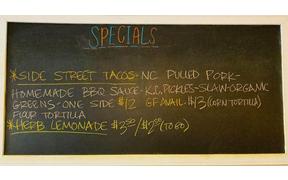 SPECIALS
*SIDE STREET TACOS-NC PULLED PORK-
HOMEMADE BBQ SAUCE-K.C. PICKLES-SLAW-ORGANIC
GREENS-ONE SIDE $12 GF AVAIL.-$13 (CORN TORTILLA)
FLOUR TORTILLA
*HERB LEMONADE $3.50/$2.00 (TO GO)